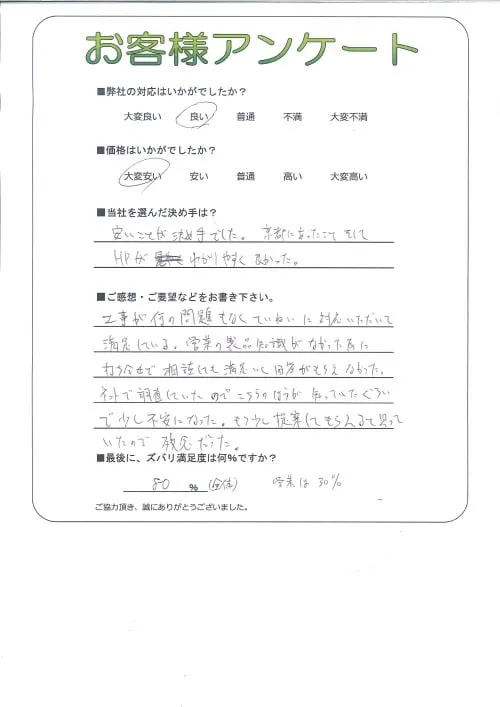 お客様アンケート
■弊社の対応はいかがでしたか？
大変良い 良い 普通 不満 大変不満
■価格はいかがでしたか？
大変安い 安い 普通 高い 大変高い
■当社を選んだ決め手は？
安いことが決め手でした。京都にあったこと そして
HPが わかりやすく 良かった。
■ご感想・ご要望などをお書き下さい。
工事が何の問題もなくていねいに対応いただいて
満足している。営業の製品知識がなかった為に
打ち合せで相談しても満足いく回答がもらえなかった。
ネットで調査していたのでこちらのほうが知っていたぐらい
で少し不安になった。もう少し提案してもらえると思って
いたので残念だった。
■最後に、ズバリ満足度は何%ですか？
80 % (全体) 営業は30%
ご協力頂き、誠にありがとうございました。